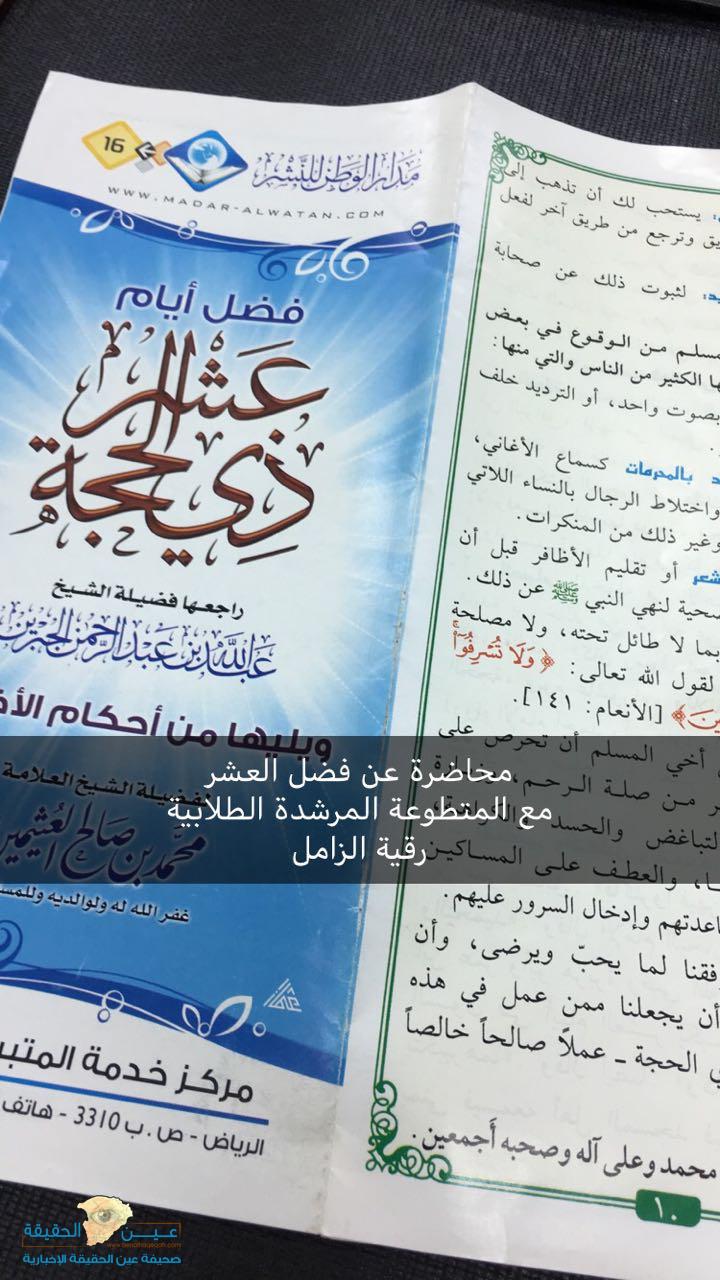 16
مدار الوطن للنشر
WWW.MADAR-ALWATAN.COM
فضل أيام
عشر
ذي الحجة
راجعها فضيلة الشيخ
عبد الله بن عبد الرحمن الجبرين
ويليها من أحكام
لفضيلة الشيخ العلامة
محمد بن صالح العثيمين
غفر الله له ولوالديه
مركز خدمة
الرياض - ص.ب 3310 - هاتف
يستحب لك أن تذهب إلى
وترجع من طريق آخر لفعل
لثبوت ذلك عن صحابة
من الوقوع في بعض
الكثير من الناس والتي منها:
بصوت واحد، أو الترديد خلف
بالمحرمات كسماع الأغاني،
واختلاط الرجال بالنساء اللاتي
وغير ذلك من المنكرات.
أو تقليم الأظافر قبل أن
لنهي النبي ﷺ عن ذلك.
بما لا طائل تحته، ولا مصلحة
لقول الله تعالى: ﴿وَلَا تُسْرِفُوٓا۟
[الأنعام: ١٤١].
أخي المسلم أن تحرص على
من صلة الرحم،
والحسد
والعطف على المساكين
وإدخال السرور عليهم.
لما يحبّ ويرضى، وأن
أن يجعلنا ممن عمل في هذه
الحجة ـ عملاً صالحاً خالصاً
محمد وعلى آله وصحبه أجمعين.
١٠
محاضرة عن فضل العشر
مع المتطوعة المرشدة الطلابية
رقية الزامل
عين الحقيقة
صحيفة عين الحقيقة الإخبارية